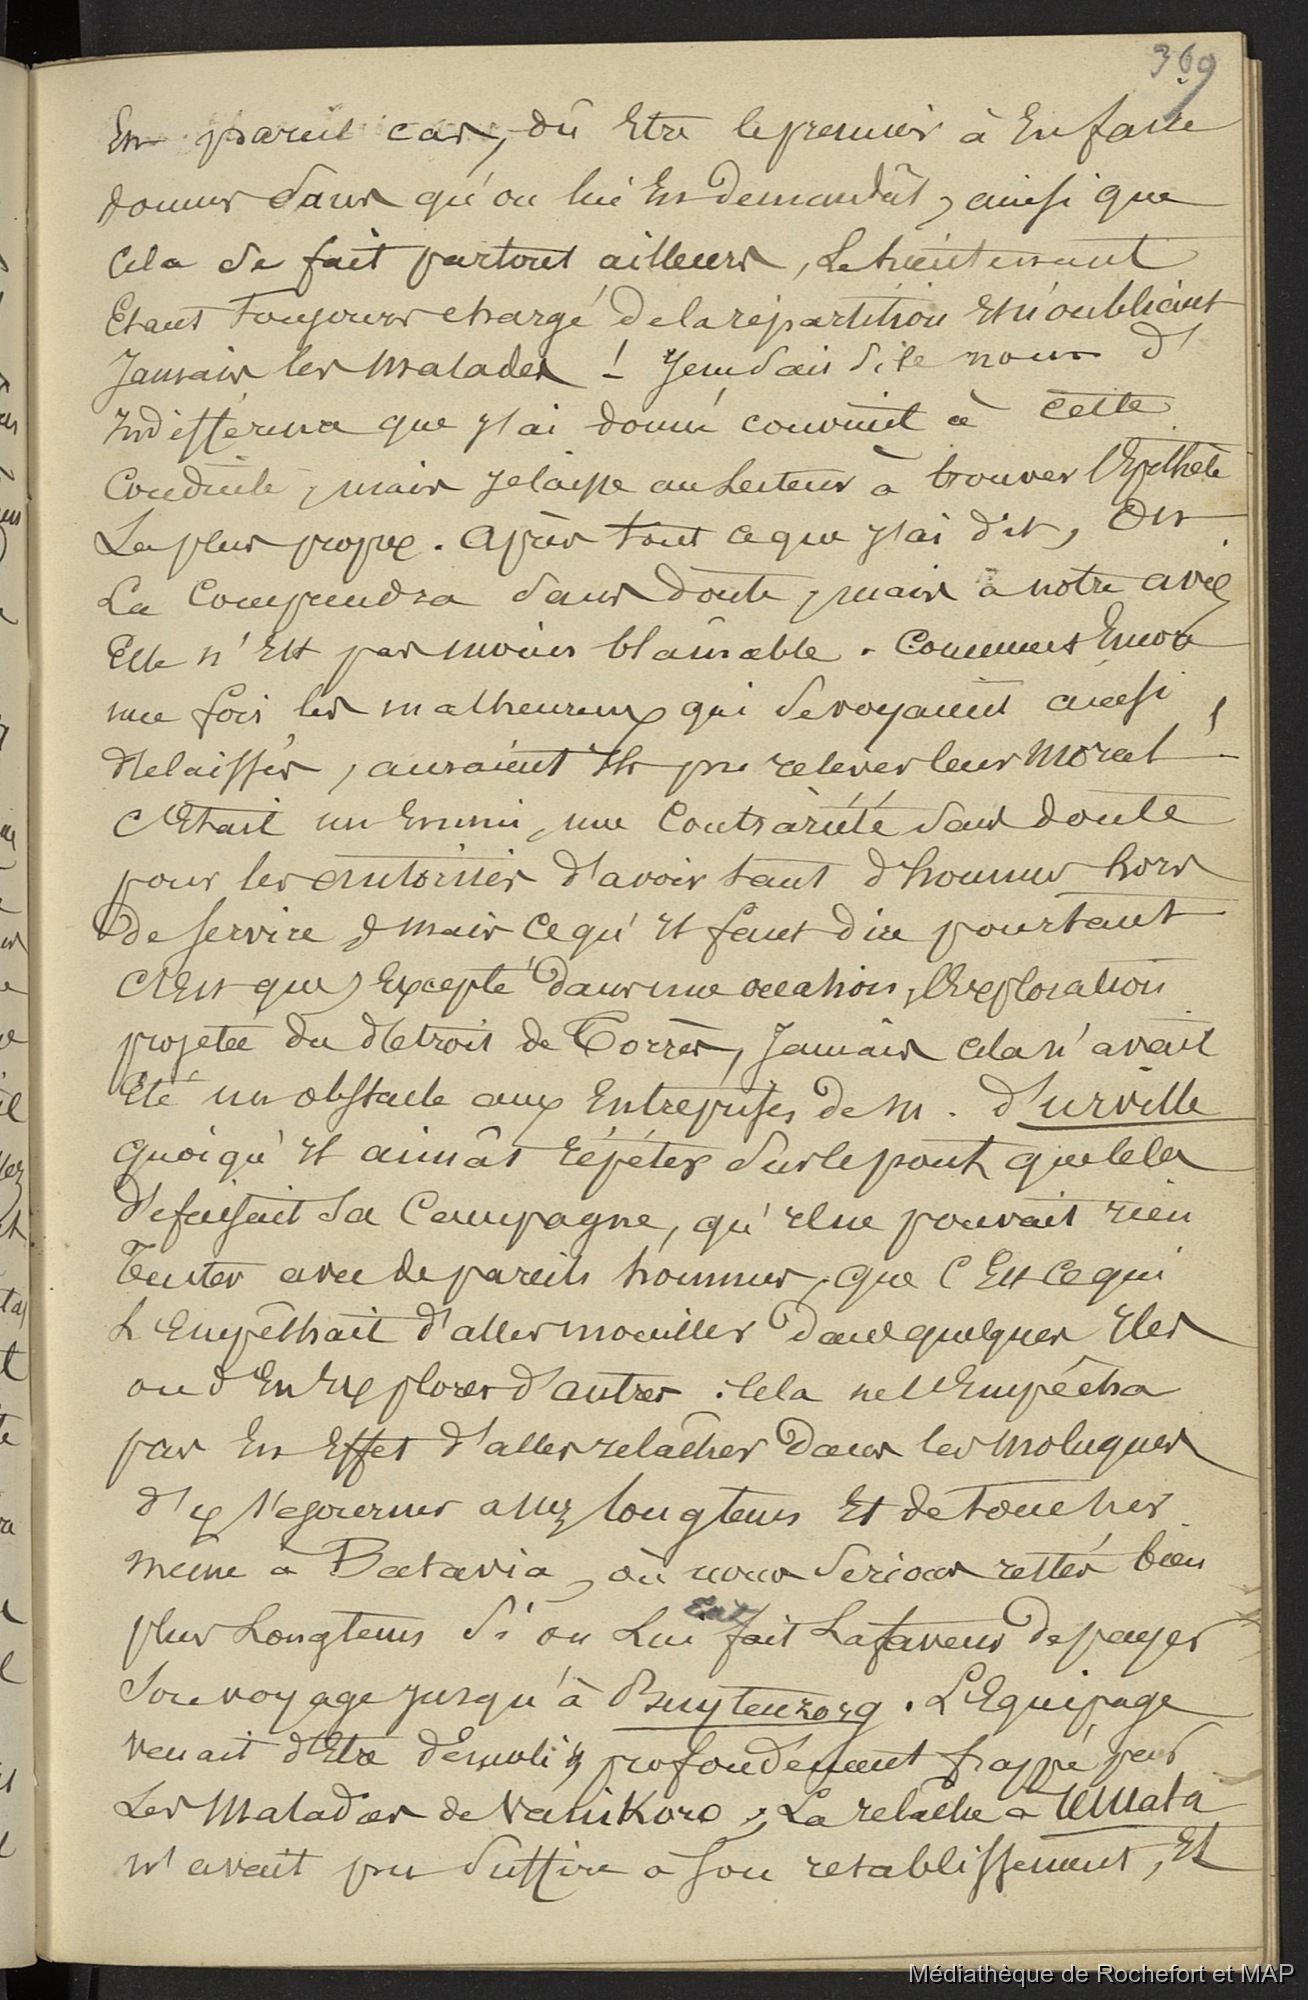 369
En pareil cas, dû Etre le premier à En faire
donner sans qu'on lui En demandât, ainsi que
cela se fait partout ailleurs, Le Lieutenant
Etant toujours chargé de la répartition Et n'oubliant
Jamais les malades ! Je ne sais si le nom d'
Indifférence que j'ai donné convient à cette
Conduite, mais je laisse au Lecteur à trouver l'Epithète
La plus propre. Après tout ce que j'ai dit, On
La Comprendra sans doute, mais à notre avis
Elle n'Est pas moins blâmable. Comment Encore
une fois les malheureux qui se voyaient ainsi
délaissés, auraient Ils pu relever leur moral !
C'Etait un Ennui, une Contrariété sans doute
pour les autorités d'avoir tant d'hommes hors
de service, mais ce qu'Il faut dire pourtant
C'Est que, Excepté dans une occasion, l'Exploration
projetée du détroit de Torrès, Jamais cela n'avait
Eté un obstacle aux Entreprises de M. d'urville
quoiqu'Il aimât répéter sur le pont que cela
défaisait sa Campagne, qu'Il ne pouvait rien
Tenter avec de pareils hommes, que C'Est ce qui
L'Empêchait d'aller mouiller dans quelques Iles
ou d'En Explorer d'autres. Cela ne l'Empêcha
pas En Effet d'aller relâcher dans les moluques
d'y séjourner assez longtems Et de toucher
même à Batavia, où nous serions restés bien
plus Longtems si on Lui Eut fait La faveur de payer
son voyage jusqu'à Buytenzorg. L'Equipage
venait d'Etre démoli & profondément frappé par
Les Malades de Vanikoro, La relâche à Umata
n'avait pu suffire à son rétablissement, Et
Médiathèque de Rochefort et MAP